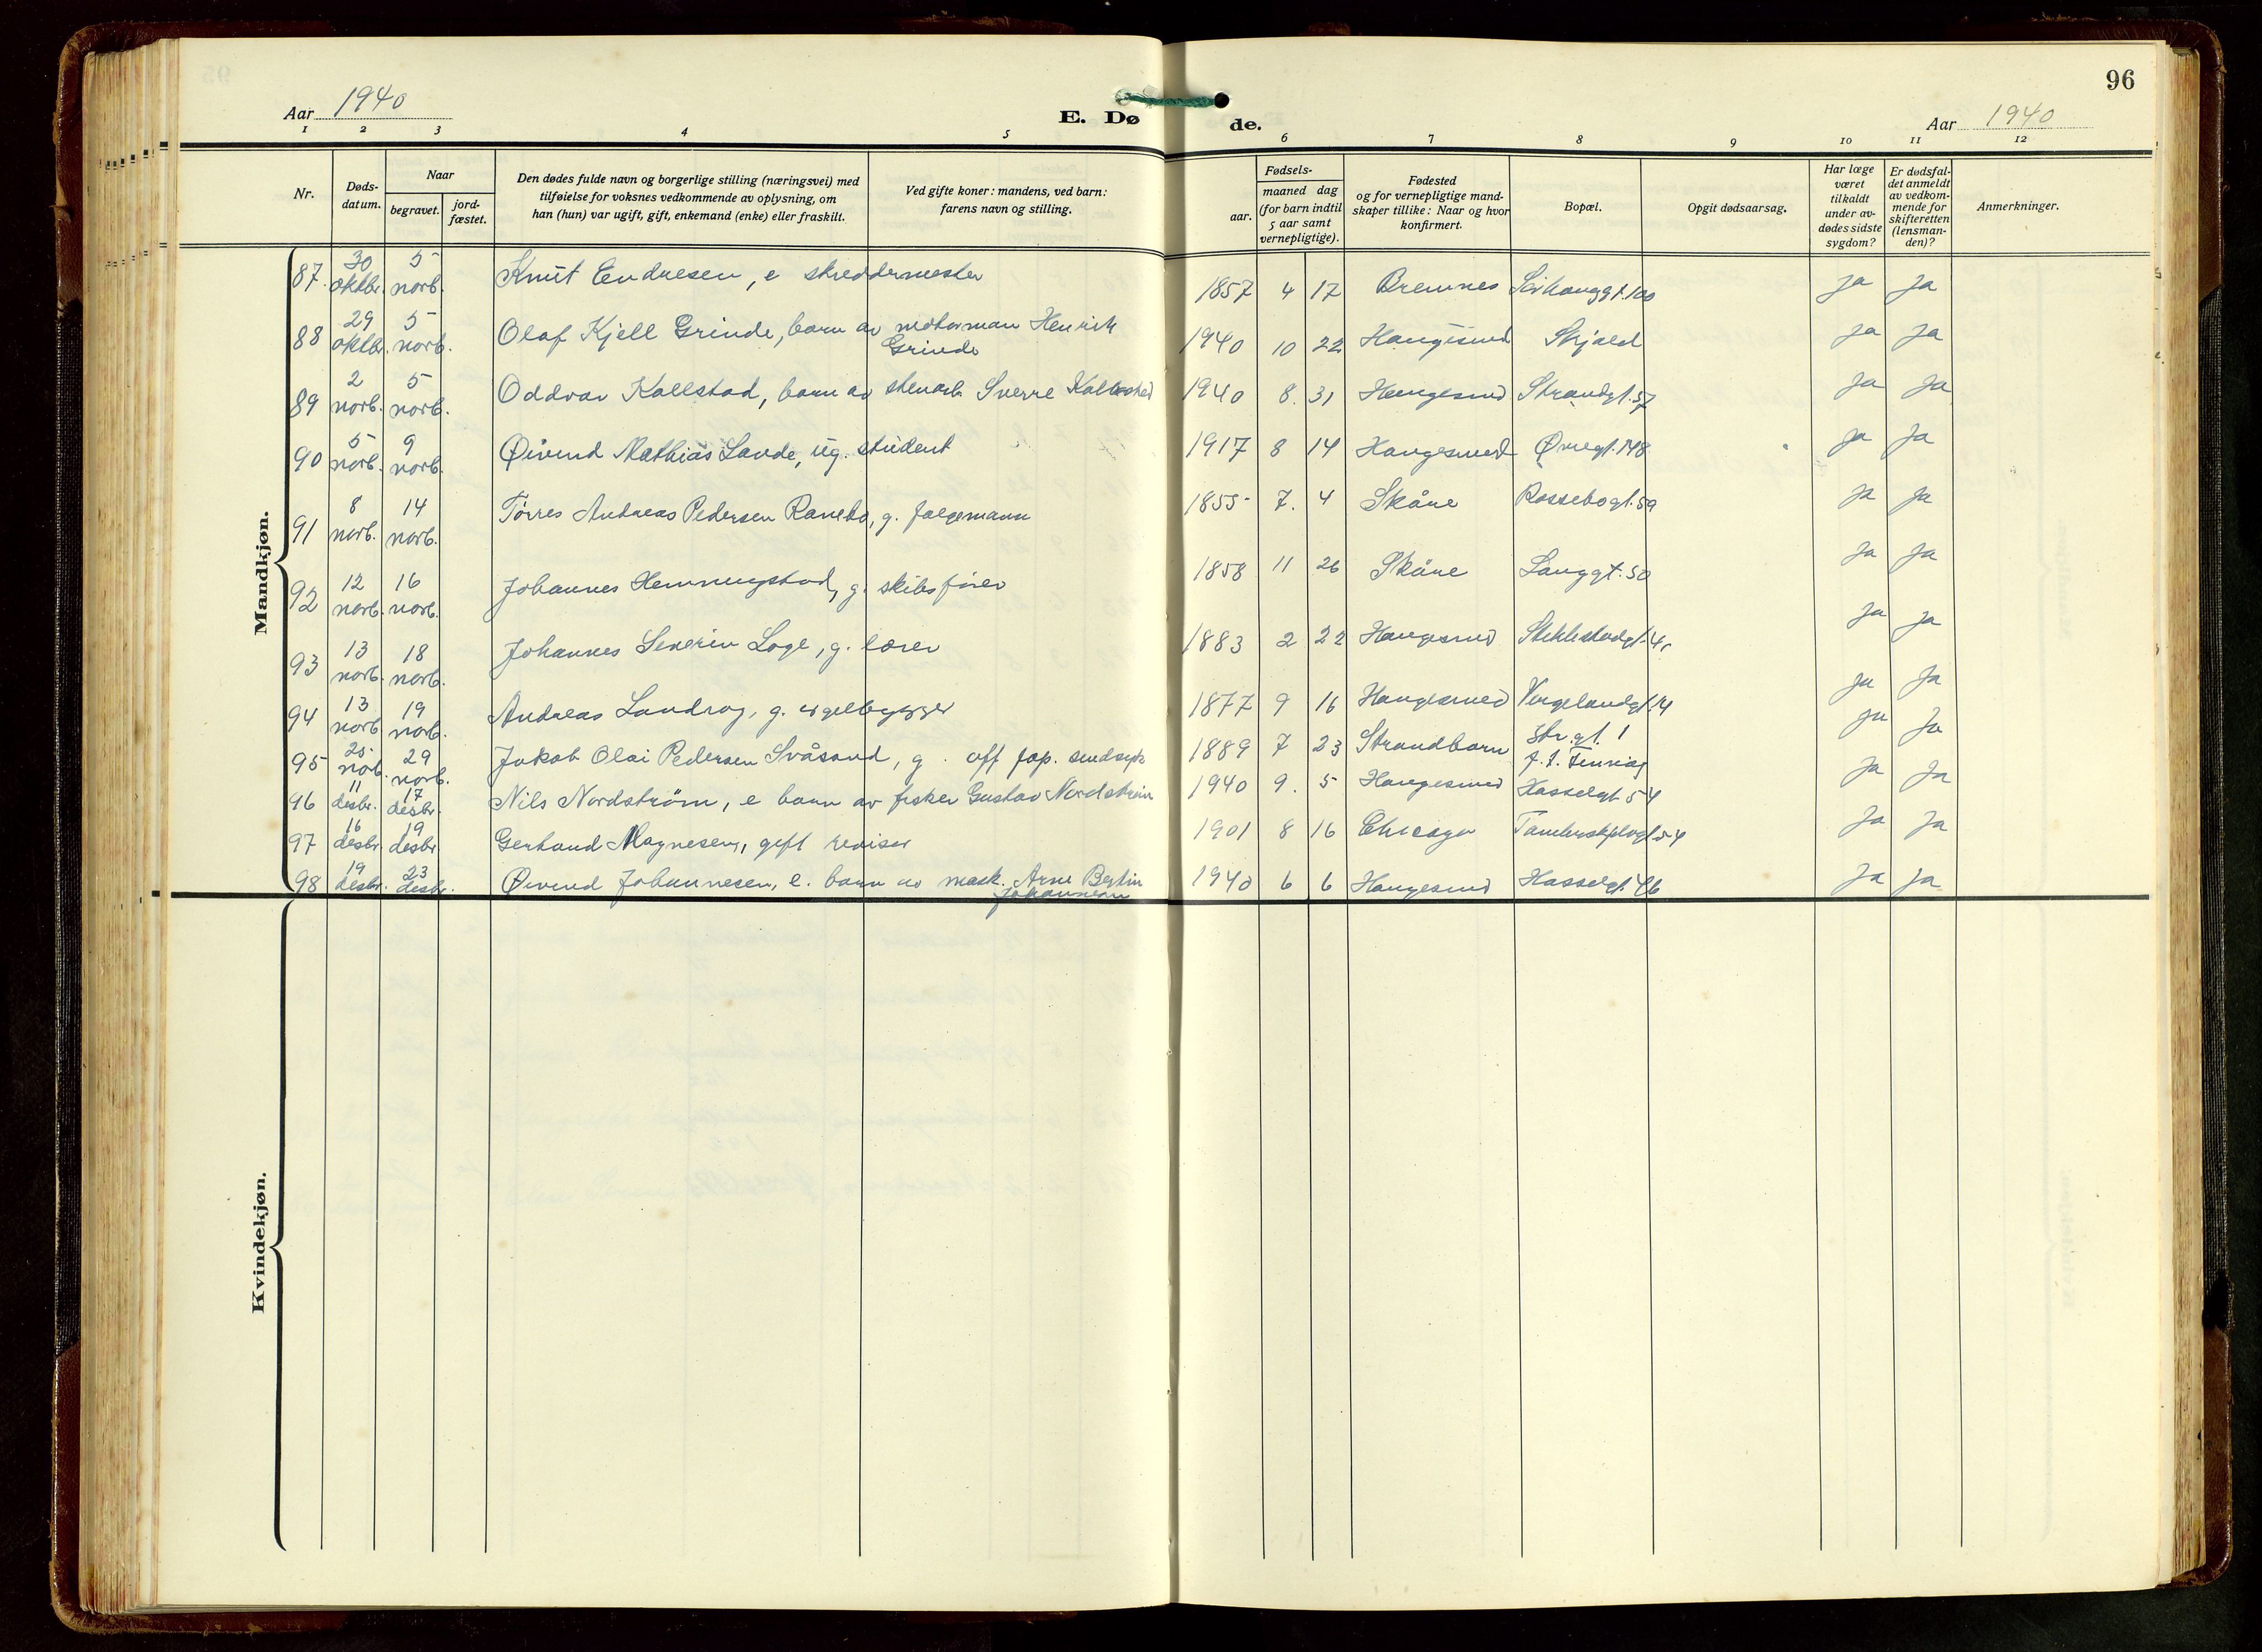 96
Aar 1940
E. Dø
de.
Aar 1940
1 2 3 4 5 6 7 8 9 10 11 12
Nr.
Døds-
datum.
Naar
begravet.
jord-
fæstet.
Den dødes fulde navn og borgerlige stilling (næringsvei) med
tilføielse for voksnes vedkommende av oplysning, om
han (hun) var ugift, gift, enkemand (enke) eller fraskilt.
Ved gifte koner: mandens, ved barn:
farens navn og stilling.
Fødsels-
aar.
maaned dag
(for barn indtil
5 aar samt
vernepligtige).
Fødested
og for vernepligtige mand-
skaper tillike: Naar og hvor
konfirmert.
Bopæl.
Opgit dødsaarsag.
Har læge
været
tilkaldt
under av-
dødes sidste
sygdom?
Er dødsfal-
det anmeldt
av vedkom-
mende for
skifteretten
(lensman-
den)?
Anmerkninger.
Mandkjøn.
87. 30 oktbr. 5 novb. Knut Endresen, e skreddermester 1857 4 17 Bremnes 100 ja ja
88 29 oktbr. 5 novb. Olaf Kjell Grinde, barn av motorman Henrik
Grinde 1940 10 22 Haugesund Skjold ja ja
89 2 novb. 5 novb. Oddvar Kallstad, barn av stenarb. Sverre Kallestad 1940 8. 31 Haugesund Strandgt. 57 ja ja
90 5 novb. 9 novb. Øivind Mathias Lande, ug. student 1917 8 14 Haugesund Øvregt. 148 ja ja
91 8 novb. 14 novb. Tørres Andreas Pedersen Ranebo, g. 1855 7. 4 Skåre Rossebogt. 59 ja ja
92 12 novb. 16 novb. Johannes Hemmingstad, g. skibsfører 1858 11 26 Skåre Langgt. 50 ja ja
93 13 novb. 18 novb. Johannes Severin Loge, g. lærer 1883 2 22 Haugesund Stiklestadgt. ja ja
94 13 novb 19 novb. Andreas Landrog, g. orgelbygger 1877 9 16 Haugesund Vergelandgt. 14 ja ja
95 25 novb. 29 novb. Jakob Olai Pedersen Svåsand, g. off. sindsyk 1889 7 23 Strandbarm Str. gt. 1 ja ja
96 11 desbr. 17 desbr. Nils Nordstrøm, e barn av fisker Gustav Nordstrøm 1940 9. 5 Haugesund Hasselgt. 54 ja ja
97 16 desbr. 19 desbr Gerhard Magnesen, gift revisor 1901 8 16 Chicago 54 ja ja
98 19 desbr. 23 desbr. Øivind Johannesen, e. barn av mask. Arne Bertin
Johannesen 1940 6 6 Haugesund Hasselgt. 46 ja ja
Kvindekjøn.